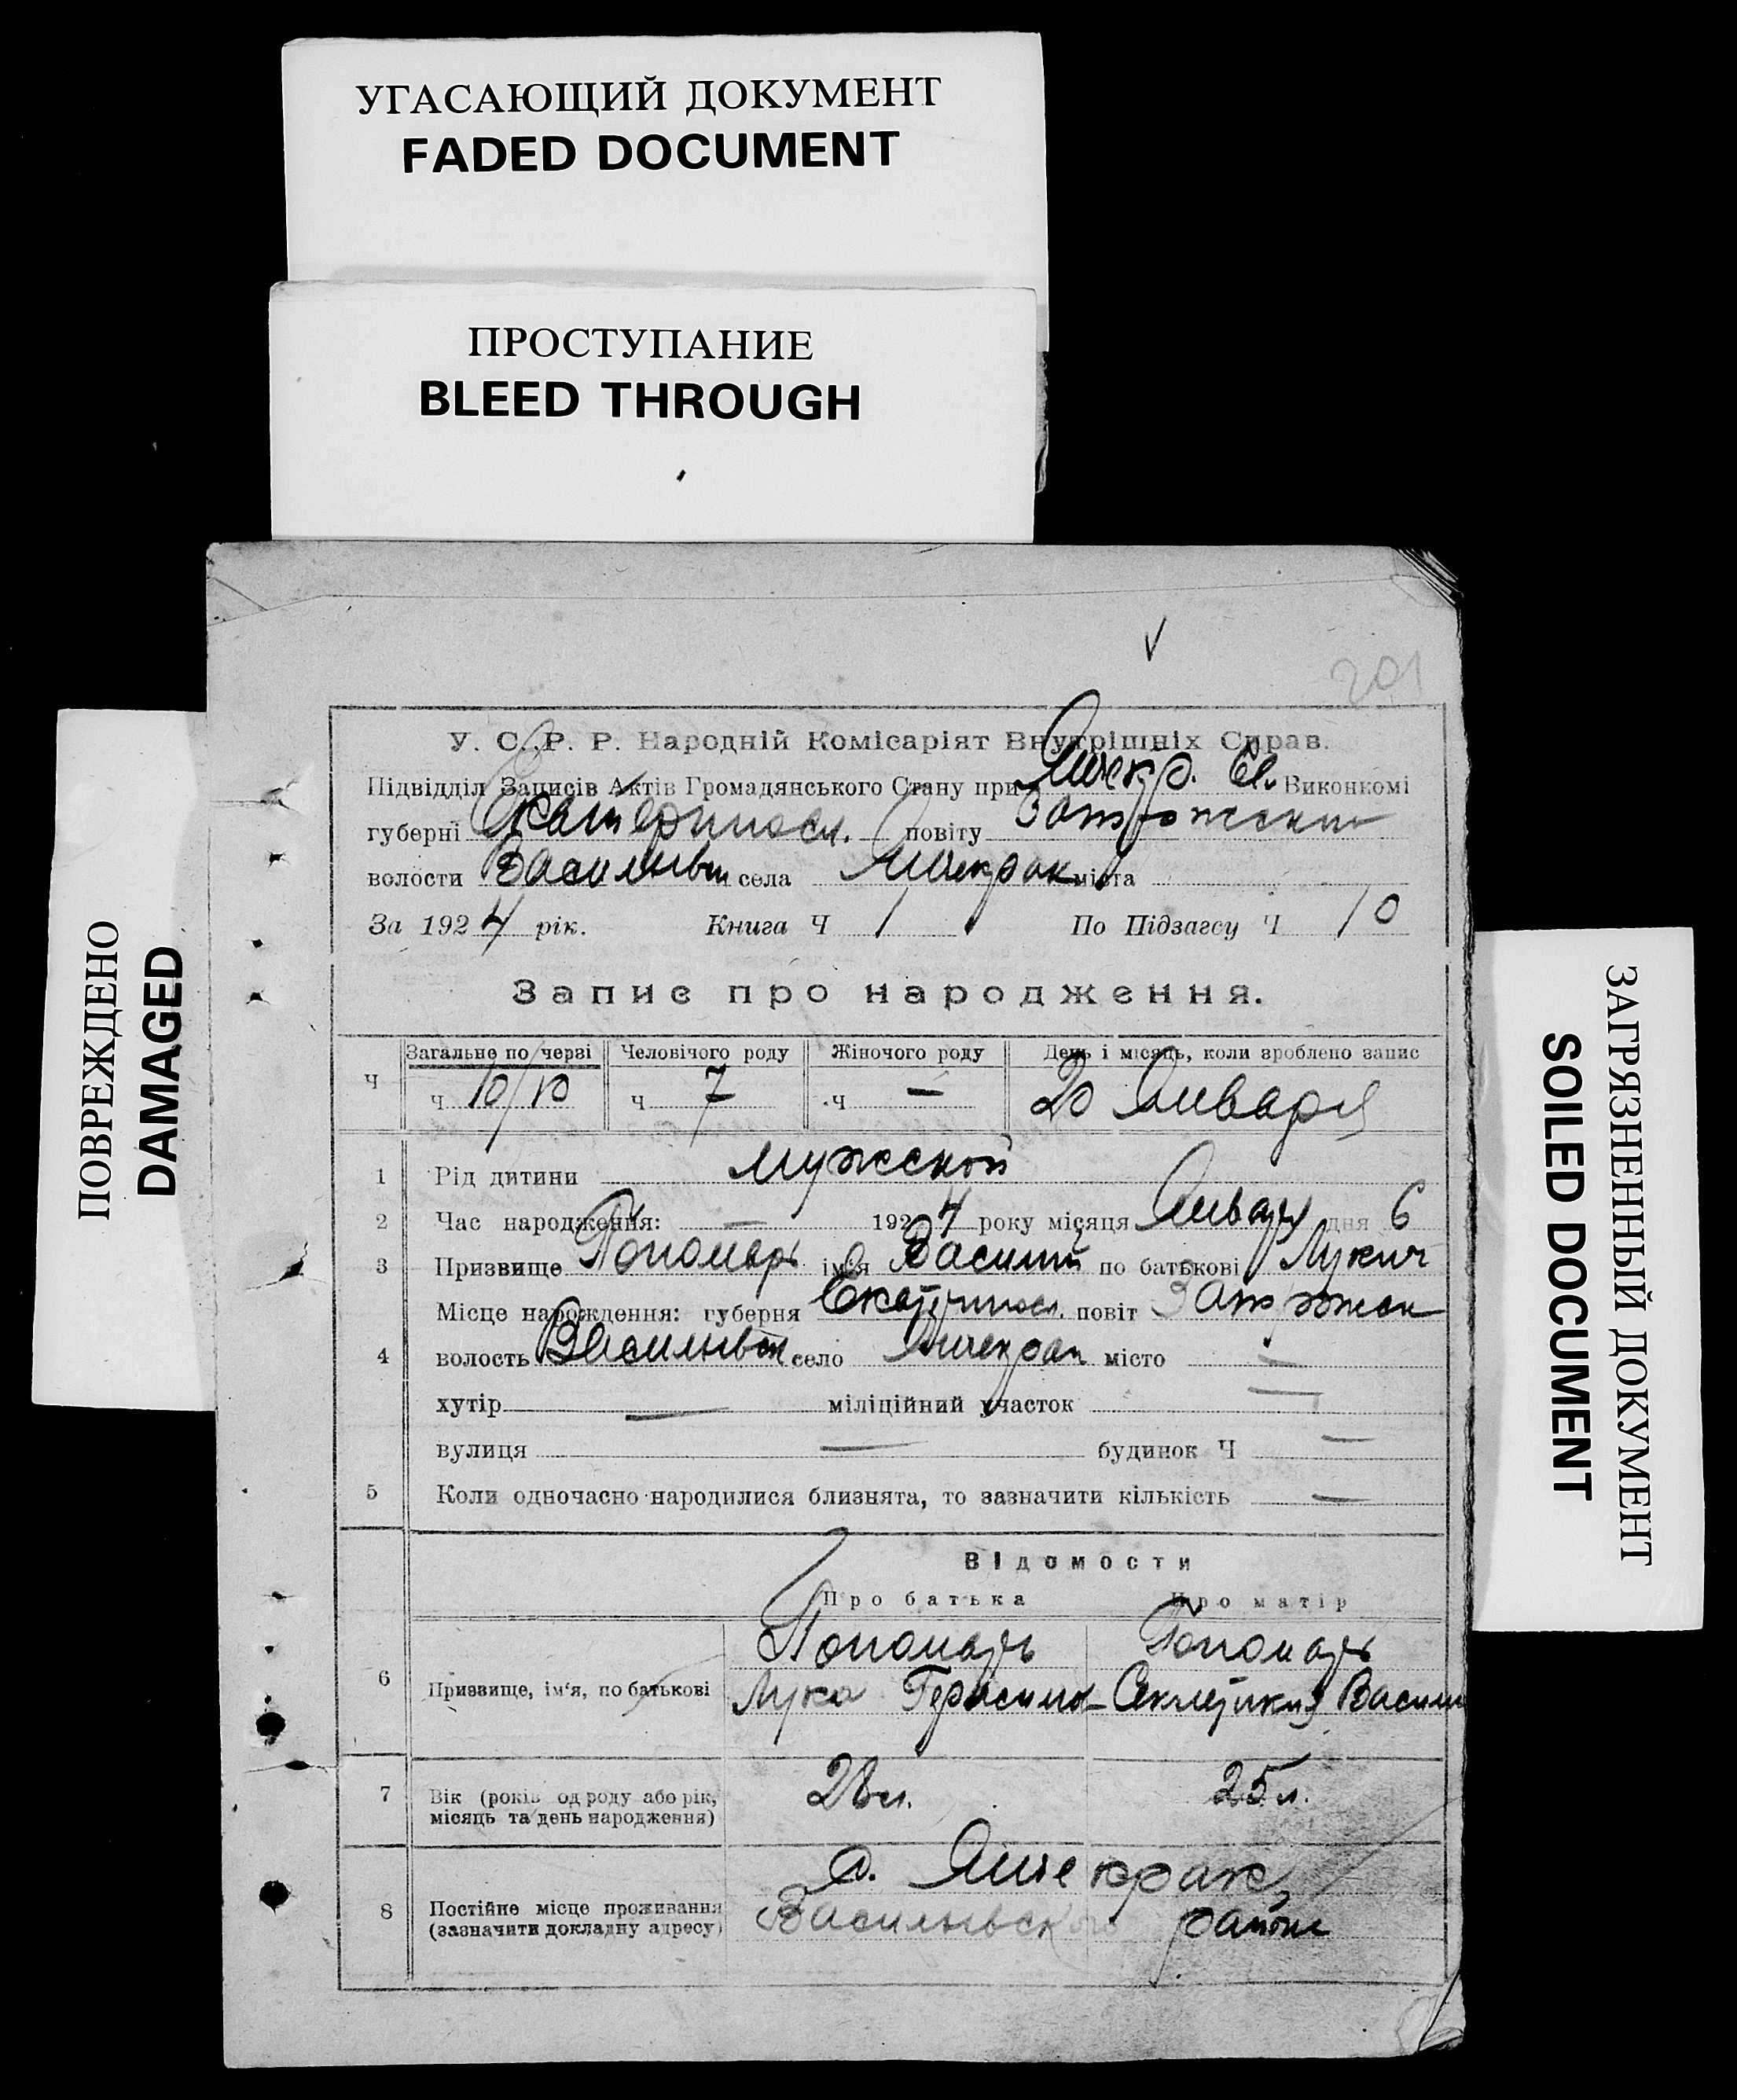 УГАСАЮЩИЙ ДОКУМЕНТ
FADED DOCUMENT
ПРОСТУПАНИЕ
BLEED THROUGH
ПОВРЕЖДЕНО
DAMAGED
ЗАГРЯЗНЕННЫЙ ДОКУМЕНТ
SOILED DOCUMENT
201
У. С. Р. Р. Народній Комісаріят Внутрішніх Справ.
Підвідділ Записів Актів Громадянського Стану при Янчекр. Сл. Виконкомі
губерні Екатериносл. повіту Запорожский
волости Васильевск села Янчекрак міста
За 1924 рік. Книга Ч 1 По Підзагсу Ч 10
Запис про народження.
Загальне по черзі Человічого роду Жіночого роду День і місяць, коли зроблено запис
Ч ч 10/10 ч 7 ч — 20 Января
1 Рід дитини мужской
2 Час народження: — 1924 року місяця Января дня 6
3 Призвище Пономарь ім'я Василий по батькові Лукич
Місце народження: губерня Екатериносл. повіт Запорожск
4 волость Васильевск село Янчекрак місто —
хутір — міліційний участок —
вулиця — будинок Ч —
5 Коли одночасно народилися близнята, то зазначити кількість —
Відомости
Про батька Про матір
Пономарь Пономарь
6 Призвище, ім'я, по батькові Лука Герасимо- Секлетикия Васили
7 Вік (років од роду або рік, 28 л. 25 л.
місяць та день народження)
с. Янчекрак,
8 Постійне місце проживання Васильевского района
(зазначити докладну адресу)